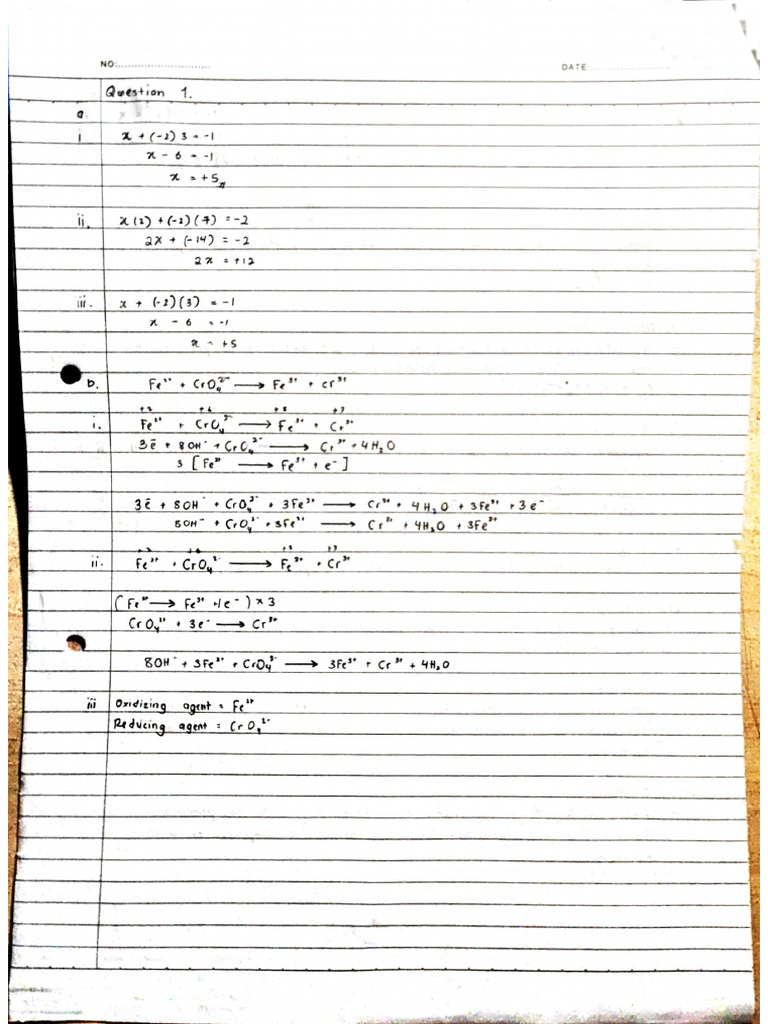 NO:
DATE:
Question 1.
a.
i x + (-2) 3 = -1
x - 6 = -1
x = +5
ii. x(2) + (-2)(7) = -2
2x + (-14) = -2
2x = +12
iii. x + (-2)(3) = -1
x - 6 = -1
x = +5
b. Fe²⁺ + CrO₄²⁻ → Fe³⁺ + Cr³⁺
+2 +6 +3 +3
i. Fe²⁺ + CrO₄²⁻ → Fe³⁺ + Cr³⁺
3e⁻ + 8OH⁻ + CrO₄²⁻ → Cr³⁺ + 4H₂O
3 [Fe²⁺ → Fe³⁺ + e⁻]
3e⁻ + 8OH⁻ + CrO₄²⁻ + 3Fe²⁺ → Cr³⁺ + 4H₂O + 3Fe³⁺ + 3e⁻
8OH⁻ + CrO₄²⁻ + 3Fe²⁺ → Cr³⁺ + 4H₂O + 3Fe³⁺
+2 +6 +3 +3
ii. Fe²⁺ + CrO₄²⁻ → Fe³⁺ + Cr³⁺
(Fe²⁺ → Fe³⁺ + 1e⁻) × 3
CrO₄²⁻ + 3e⁻ → Cr³⁺
8OH⁻ + 3Fe²⁺ + CrO₄²⁻ → 3Fe³⁺ + Cr³⁺ + 4H₂O
iii Oxidizing agent = Fe²⁺
Reducing agent = CrO₄²⁻